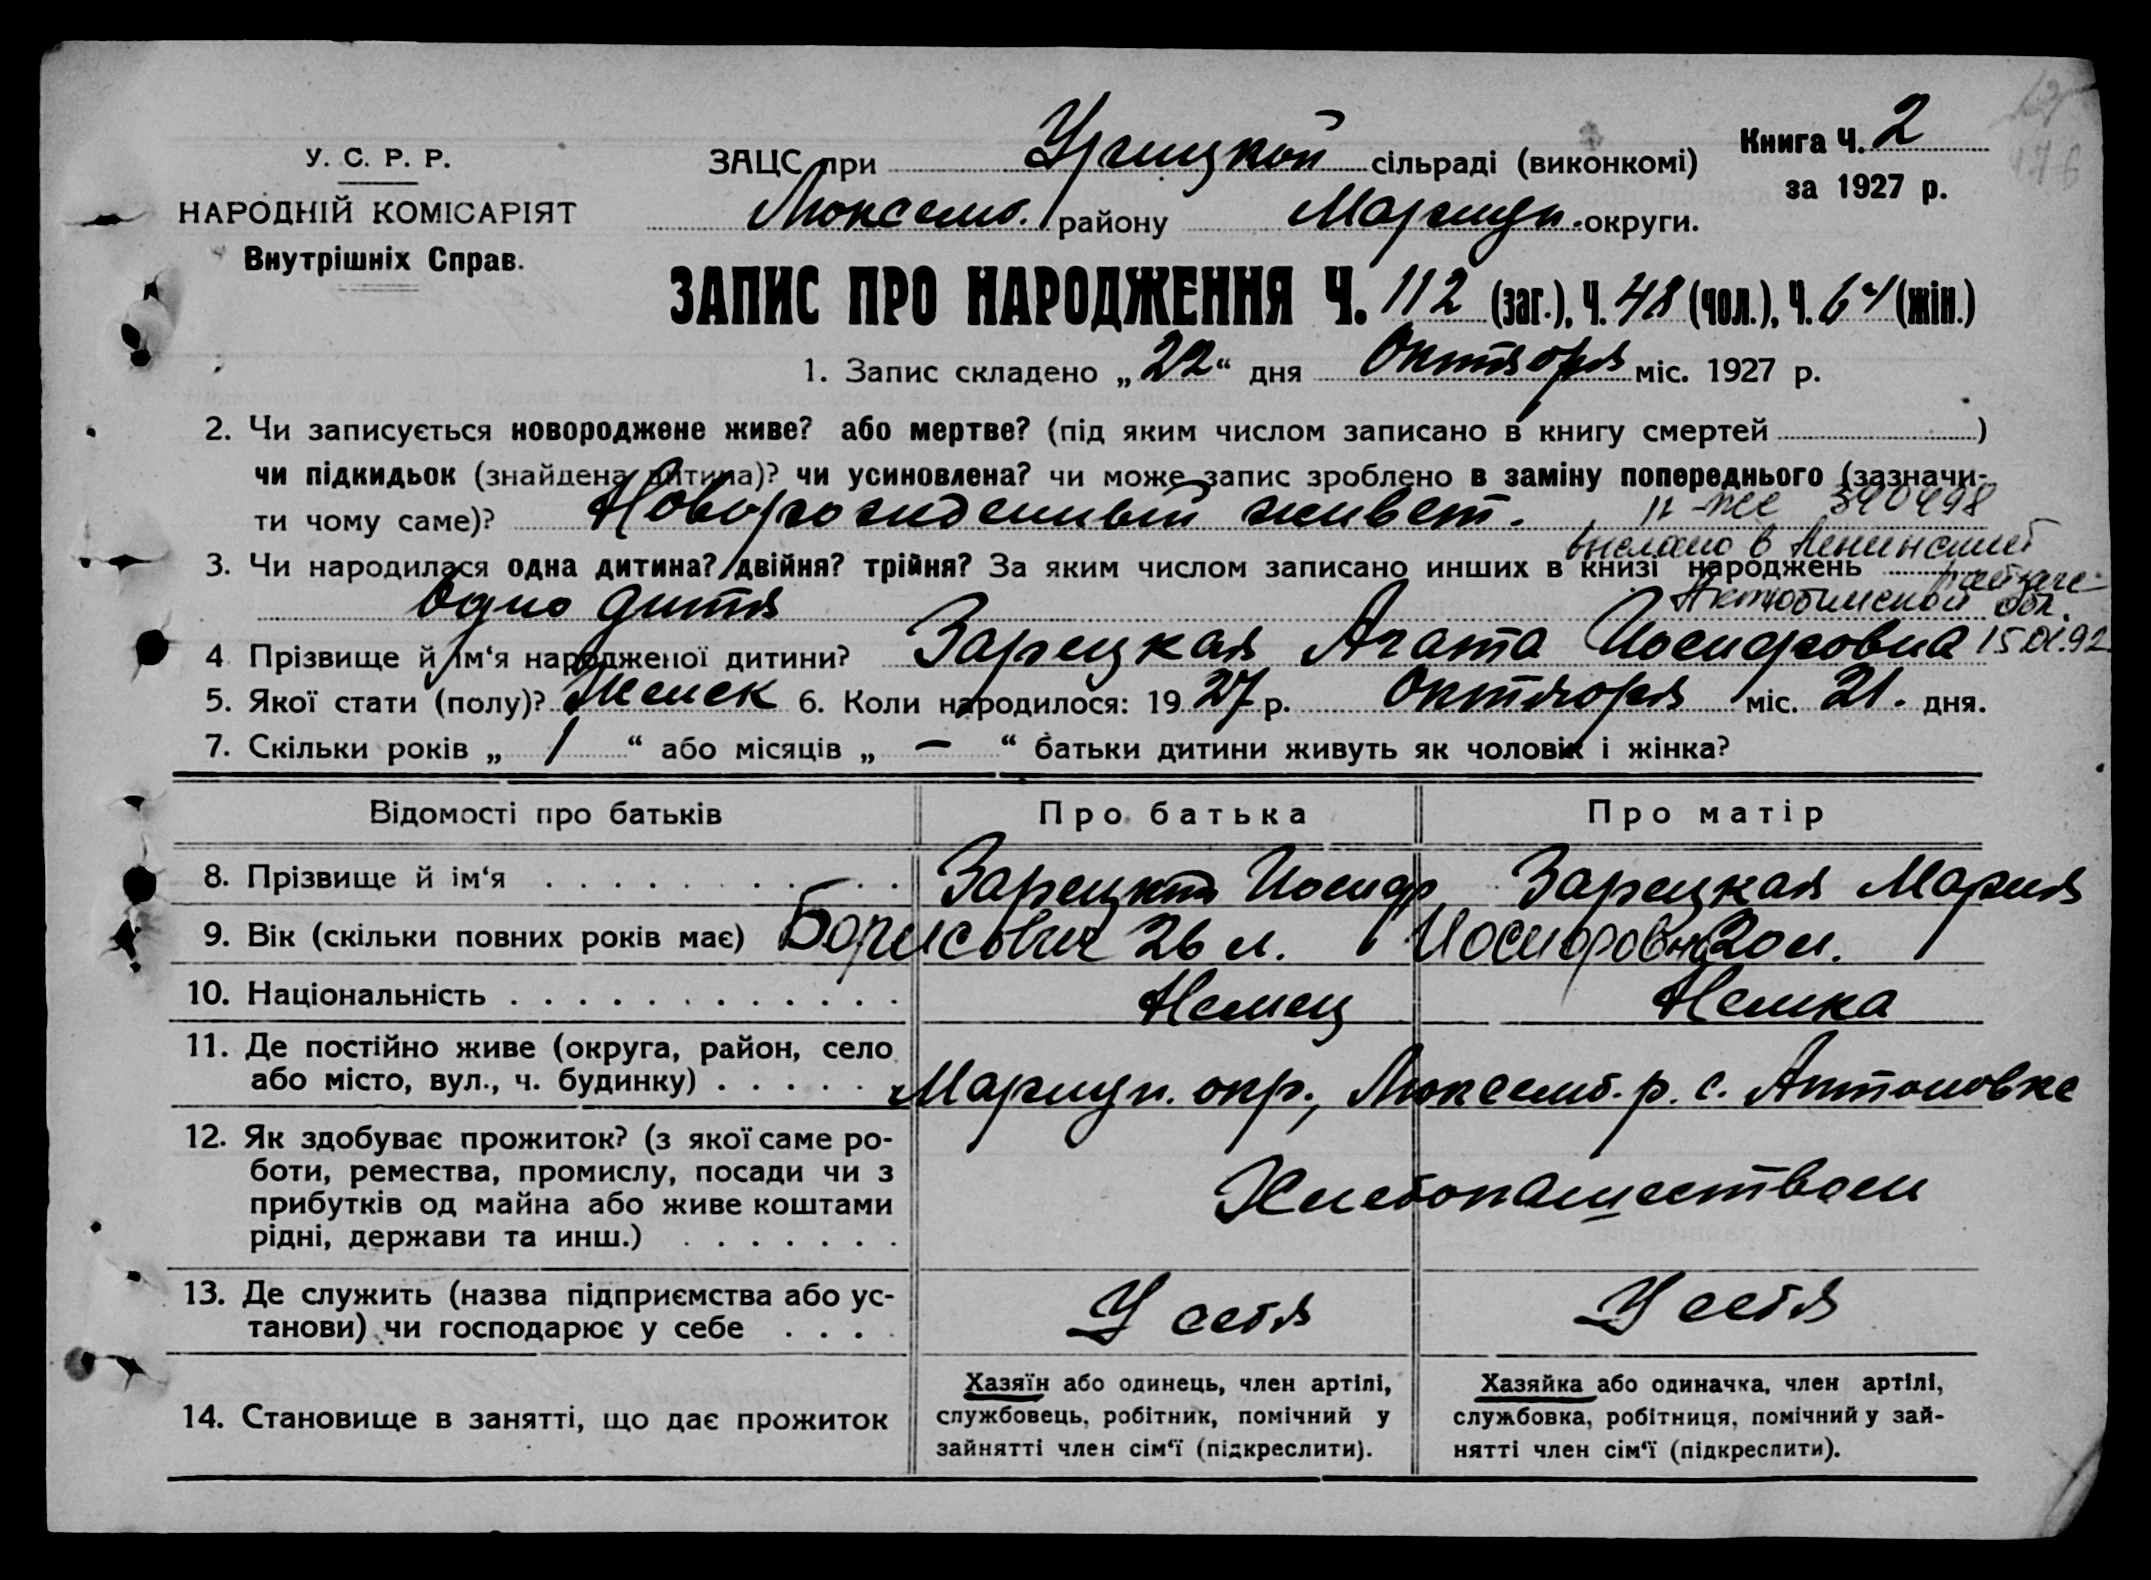 У. С. Р. Р.
НАРОДНІЙ КОМІСАРІЯТ
Внутрішніх Справ.
ЗАЦС при Урицкой сільраді (виконкомі)
Люксемб. району Мариуп. округи.
Книга Ч. 2
за 1927 р.
ЗАПИС ПРО НАРОДЖЕННЯ Ч. 112 (заг.), Ч. 48 (чол.), Ч. 64 (жін.)
1. Запис складено „22“ дня Октября міс. 1927 р.
2. Чи записується новороджене живе? або мертве? (під яким числом записано в книгу смертей )
чи підкидьок (знайдена дитина)? чи усиновлена? чи може запис зроблено в заміну попереднього (зазначи-
ти чому саме)? Новорожденный живет.
340498
выслано в Ленинский
3. Чи народилася одна дитина? двійня? трійня? За яким числом записано инших в книзі народжень
Актюбинской обл.
Одно дитя
4 Прізвище й ім‘я народженої дитини? Зарецкая Агата Иосифовна
5. Якої стати (полу)? Женск 6. Коли народилося: 1927 р. Октября міс. 21. дня.
7. Скільки років „ 1 “ або місяців „ — “ батьки дитини живуть як чоловік і жінка?
Відомості про батьків Про батька Про матір
8. Прізвище й ім‘я Зарецкий Иосиф Зарецкая Мария
9. Вік (скільки повних років має) Борисович 26 л. Иосифовна 20 л.
10. Національність Немец Немка
11. Де постійно живе (округа, район, село
або місто, вул., ч. будинку) Мариуп. окр., Люксемб. р. с. Антоновке
12. Як здобуває прожиток? (з якої саме ро-
боти, ремества, промислу, посади чи з
прибутків од майна або живе коштами
рідні, держави та инш.)
Хлебопашеством
13. Де служить (назва підприємства або ус-
танови) чи господарює у себе У себя У себя
14. Становище в занятті, що дає прожиток
Хазяїн або одинець, член артілі,
службовець, робітник, помічний у
зайнятті член сім‘ї (підкреслити).
Хазяйка або одиначка, член артілі,
службовка, робітниця, помічний у зай-
нятті член сім‘ї (підкреслити).